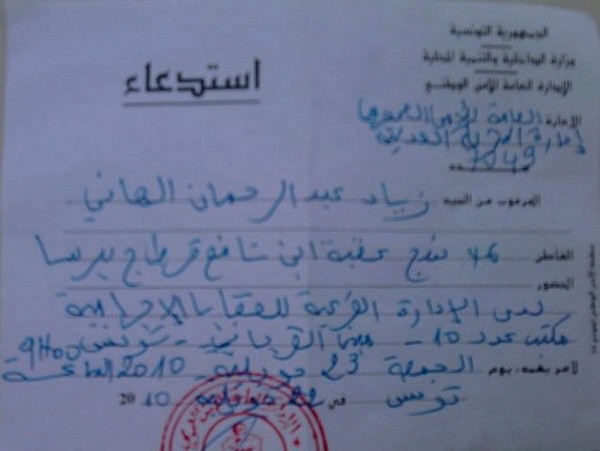 الجمهورية التونسية
وزارة الداخلية والتنمية المحلية
الإدارة العامة للأمن الوطني
استدعاء
الإدارة العامة للأمن العمومي
إدارة
عدد 7049
المرغوب من السيد زياد عبد الرحمان الهاني
القاطن 46 نهج عقبة ابن نافع قرطاج بيرصا
الحضور
لدى الإدارة الفرعية للقضايا الإجرامية
مكتب عدد 10 - القرجاني - تونس 9H00
لأمر يهمه، يوم الجمعة 23 جويلية 2010 الساعة
تونس في 22 جويلية 2010